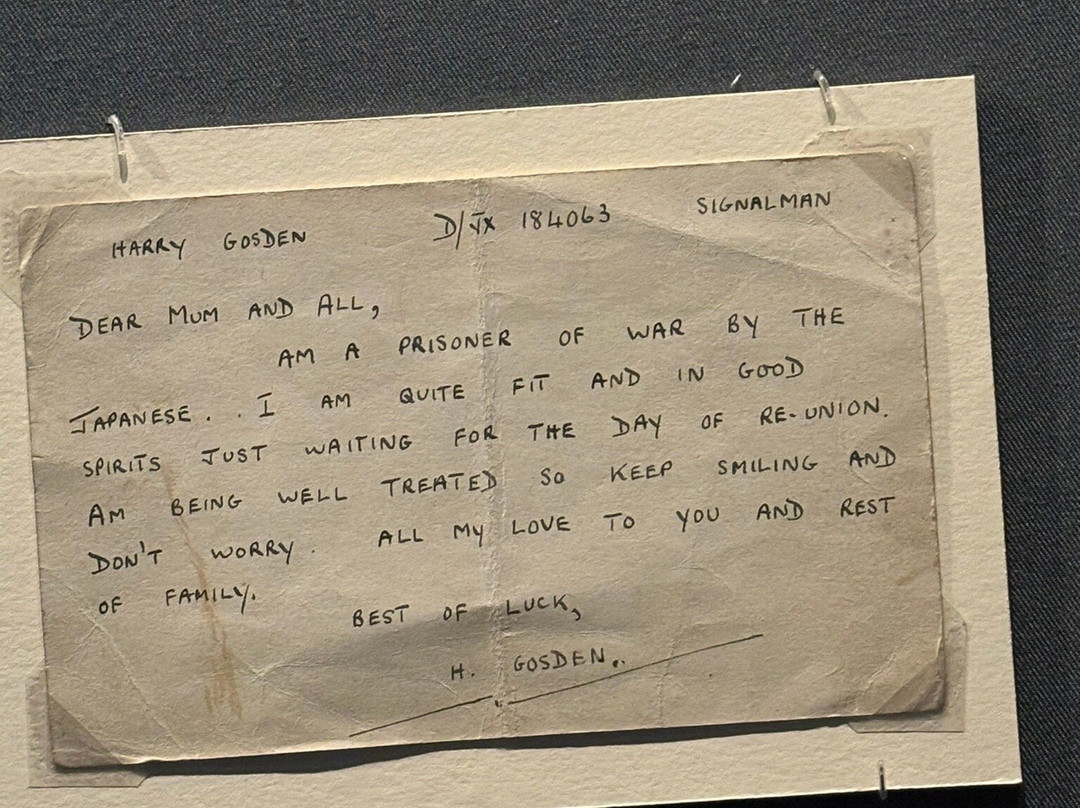 HARRY GOSDEN D/JX 184063 SIGNALMAN
DEAR MUM AND ALL,
AM A PRISONER OF WAR BY THE
JAPANESE. . I AM QUITE FIT AND IN GOOD
SPIRITS JUST WAITING FOR THE DAY OF RE-UNION.
AM BEING WELL TREATED SO KEEP SMILING AND
DON'T WORRY. ALL MY LOVE TO YOU AND REST
OF FAMILY.
BEST OF LUCK,
H. GOSDEN..